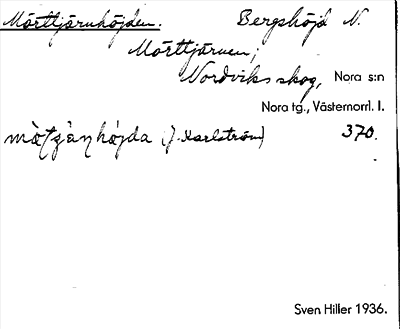 Mörttjärnhöjden. Bergshöjd N.
Mörttjärnen;
Nordviks skog, Nora s:n
Nora tg., Västernorrl. l.
(J. Karlström) 370.
Sven Hiller 1936.